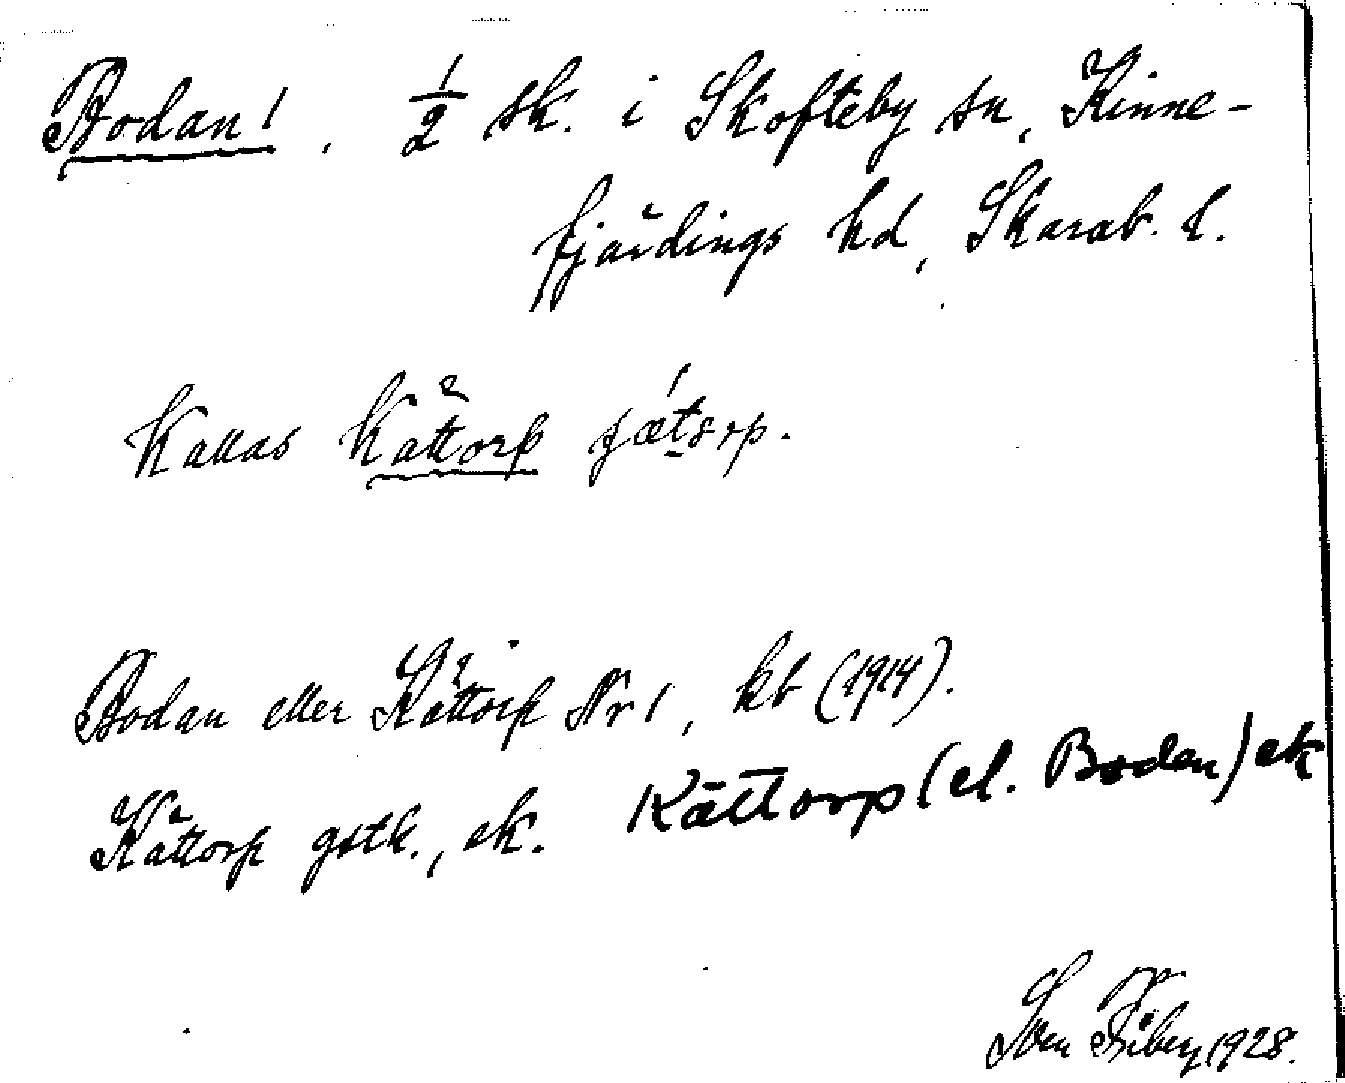 Bodan!, 1/2 sk. i Skofteby sn, Kinne-
fjärdings hd, Skarab. l.
Kallas Kättorp
Bodan eller Kättorp Nr 1, kb (1914).
Kättorp gstk., ek. Kättorp (el. Bodan) ek
Sven Fiberg 1928.